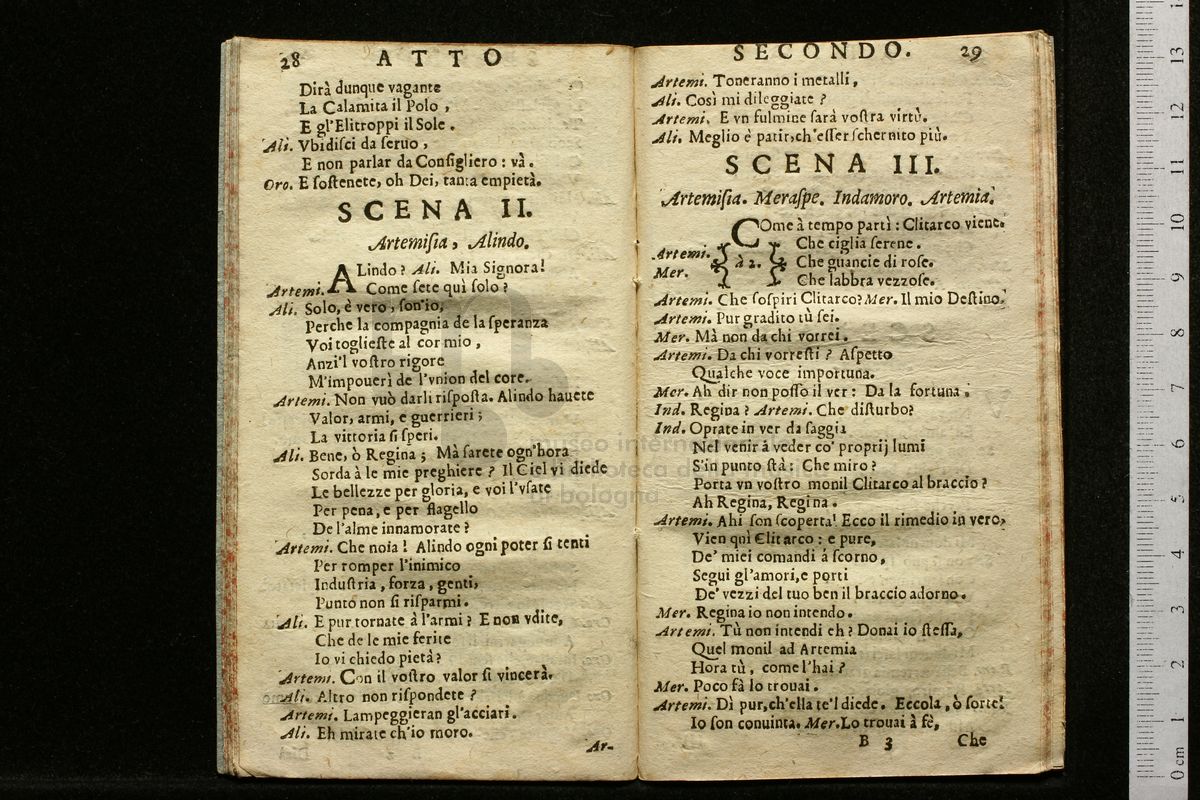 28 ATTO
Dirà dunque vagante
La Calamita il Polo ,
E gl'Elitroppi il Sole .
Ali. Vbidisci da seruo ,
E non parlar da Consigliero : và .
Oro. E sostenete, oh Dei, tanta empietà.
SCENA II.
Artemisia, Alindo.
ALindo ? Ali. Mia Signora!
Artemi. Come sete quì solo ?
Ali. Solo, è vero, son'io,
Perche la compagnia de la speranza
Voi toglieste al cor mio ,
Anzi'l vostro rigore
M'impouerì de l'vnion del core.
Artemi. Non vuò darli risposta. Alindo hauete
Valor, armi, e guerrieri ;
La vittoria si speri.
Ali. Bene, ò Regina ; Mà sarete ogn'hora
Sorda à le mie preghiere ? Il Ciel vi diede
Le bellezze per gloria, e voi l'vsate
Per pena, e per flagello
De l'alme innamorate ?
Artemi. Che noia ! Alindo ogni poter si tenti
Per romper l'inimico
Industria , forza , genti,
Punto non si risparmi .
Ali. E pur tornate à l'armi ? E non vdite,
Che de le mie ferite
Io vi chiedo pietà ?
Artemi. Con il vostro valor si vincerà.
Ali. Altro non rispondete ?
Artemi. Lampeggieran gl'acciari.
Ali. Eh mirate ch'io moro.
Ar-
SECONDO. 29
Artemi. Toneranno i metalli ,
Ali. Così mi dileggiate ?
Artemi. E vn fulmine sarà vostra virtù.
Ali. Meglio è patir, ch'esser schernito più.
SCENA III.
Artemisia. Meraspe. Indamoro. Artemia.
COme à tempo partì : Clitarco viene.
Artemi. Mer. à 2. Che ciglia serene .
Che guancie di rose.
Che labbra vezzose.
Artemi. Che sospiri Clitarco? Mer. Il mio Destino.
Artemi. Pur gradito tù sei.
Mer. Mà non da chi vorrei .
Artemi. Da chi vorresti ? Aspetto
Qualche voce importuna.
Mer. Ah dir non posso il ver : Da la fortuna .
Ind. Regina ? Artemi. Che disturbo?
Ind. Oprate in ver da saggia
Nel venir à veder co' proprij lumi
S'in punto stà : Che miro ?
Porta vn vostro monil Clitarco al braccio ?
Ah Regina, Regina .
Artemi. Ahi son scoperta! Ecco il rimedio in vero,
Vien quì Clitarco : e pure,
De' miei comandi á scorno ,
Segui gl'amori, e porti
De' vezzi del tuo ben il braccio adorno.
Mer. Regina io non intendo.
Artemi. Tù non intendi eh ? Donai io stessa,
Quel monil ad Artemia
Hora tù , come l'hai ?
Mer. Poco fà lo trouai .
Artemi. Dì pur, ch'ella te'l diede. Eccola , ò sorte!
Io son conuinta. Mer. Lo trouai à fè,
B 3 Che
museo internazionale
e biblioteca della musica
di bologna
0 cm 1 2 3 4 5 6 7 8 9 10 11 12 13